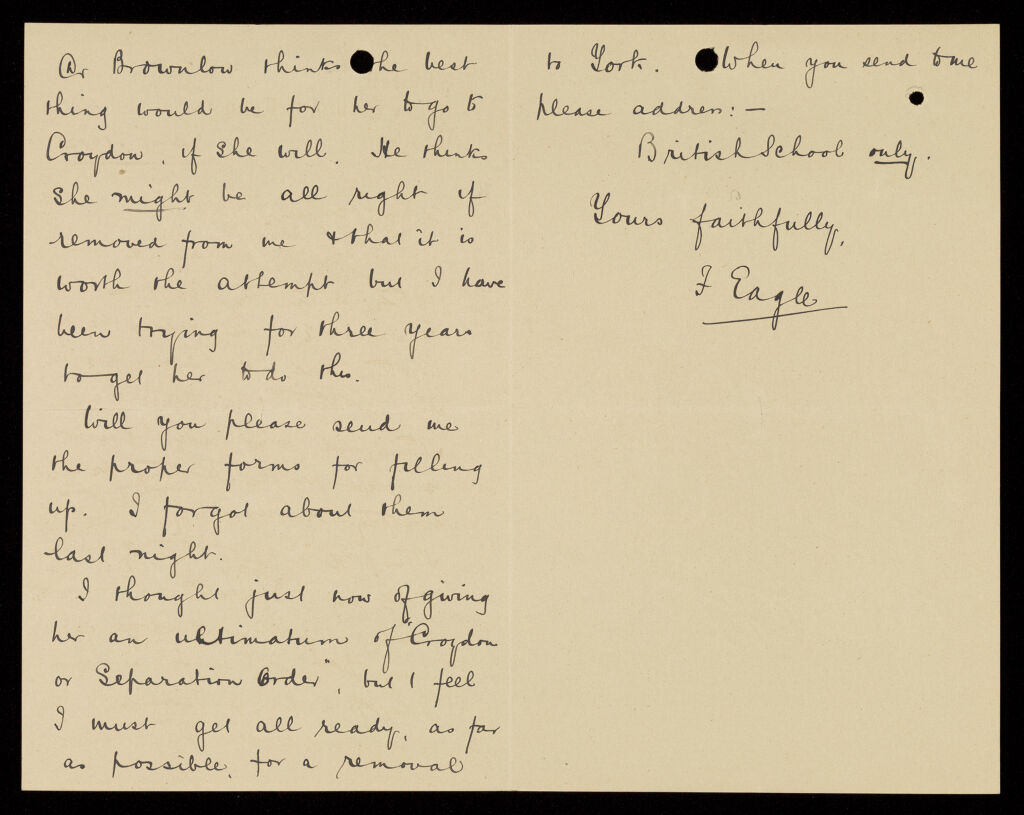 Dr Brownlow thinks the best
thing would be for her to go to
Croydon, if she will. He thinks
she might be all right if
removed from me & that it is
worth the attempt but I have
been trying for three years
to get her to do this.
Will you please send me
the proper forms for filling
up. I forgot about them
last night.
I thought just now of giving
her an ultimatum of "Croydon
or Separation Order", but I feel
I must get all ready, as far
as possible, for a removal
to York. When you send to me
please address:—
British School only.
Yours faithfully,
F Eagle